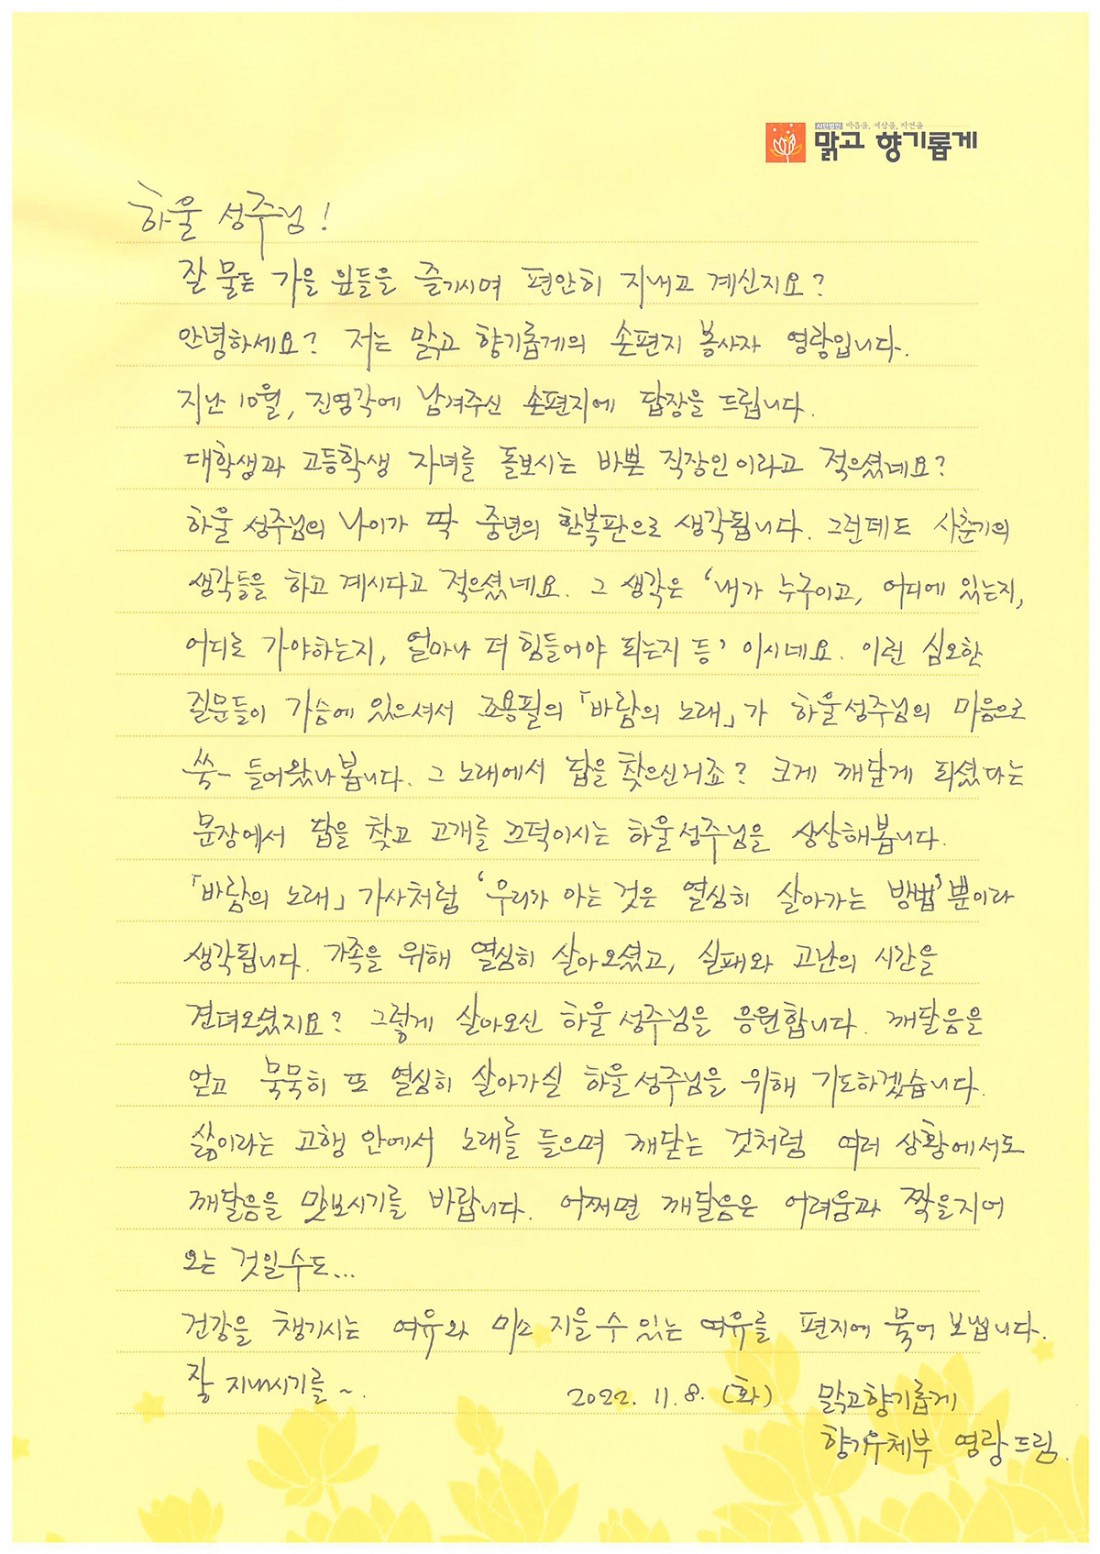 사단법인 마음을, 세상을, 자연을
맑고 향기롭게
하울 성주님!
잘 물든 가을 잎들을 즐기시며 편안히 지내고 계신지요?
안녕하세요? 저는 맑고 향기롭게의 손편지 봉사자 영랑입니다.
지난 10월, 진영각에 남겨주신 손편지에 답장을 드립니다.
대학생과 고등학생 자녀를 돌보시는 바쁜 직장인이라고 적으셨네요?
하울 성주님의 나이가 딱 중년의 한복판으로 생각됩니다. 그런데도 사춘기의
생각들을 하고 계시다고 적으셨네요. 그 생각은 '내가 누구이고, 어디에 있는지,
어디로 가야하는지, 얼마나 더 힘들어야 되는지 등' 이시네요. 이런 심오한
질문들이 가슴에 있으셔서 조용필의 「바람의 노래」가 하울성주님의 마음으로
쑥- 들어왔나봅니다. 그 노래에서 답을 찾으신거죠? 크게 깨닫게 되셨다는
문장에서 답을 찾고 고개를 끄덕이시는 하울성주님을 상상해봅니다.
「바람의 노래」 가사처럼 '우리가 아는 것은 열심히 살아가는 방법' 뿐이라
생각됩니다. 가족을 위해 열심히 살아오셨고, 실패와 고난의 시간을
견뎌오셨지요? 그렇게 살아오신 하울성주님을 응원합니다. 깨달음을
얻고 묵묵히 또 열심히 살아가실 하울성주님을 위해 기도하겠습니다.
삶이라는 고행 안에서 노래를 들으며 깨닫는 것처럼 여러 상황에서도
깨달음을 맛보시기를 바랍니다. 어쩌면 깨달음은 어려움과 짝을지어
오는 것일수도...
건강을 챙기시는 여유와 미소 지을 수 있는 여유를 편지에 묶어 보냅니다.
잘 지내시기를~.
2022. 11. 8. (화) 맑고향기롭게
향기우체부 영랑드림.